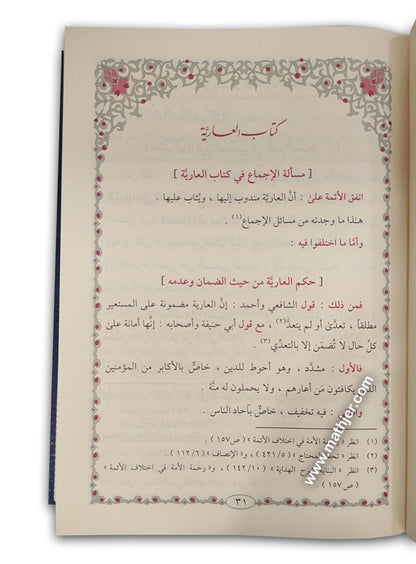 كتاب العاريَّة
[ مسألة الإجماع في كتاب العاريَّة ]
اتفق الأئمة علىٰ : أنَّ العاريَّة مندوب إليها ، ويُثاب عليها .
هٰذا ما وجدته من مسائل الإجماع(١) .
وأمَّا ما اختلفوا فيه :
[ حكم العاريَّة من حيث الضمان وعدمه ]
فمن ذلك : قول الشافعي وأحمد : إنَّ العارية مضمونة على المستعير
مطلقاً ، تعدَّىٰ أو لم يتعدَّ(٢) ، مع قول أبي حنيفة وأصحابه : إنَّها أمانة علىٰ
كلِّ حال لا تُضمَن إلا بالتعدِّي(٣) .
فالأول : مشدِّد ، وهو أحوط للدين ، خاصٌّ بالأكابر من المؤمنين
يكافئون مَن أعارهم ، ولا يحملون له منَّة .
: فيه تخفيف ، خاصٌّ بآحاد الناس .
(١) انظر « الأمة في اختلاف الأئمة » ( ص١٥٧ ) .
(٢) انظر « المحتاج » ( ٤٢١/٥ ) ، و« الإنصاف » ( ١١٢/٦ ) .
(٣) انظر « البناية الهداية » ( ١٤٢/١٠ ) ، و« رحمة الأمة في اختلاف الأئمة »
( ص ١٥٧ ) .
٣١
www.mathjer.com